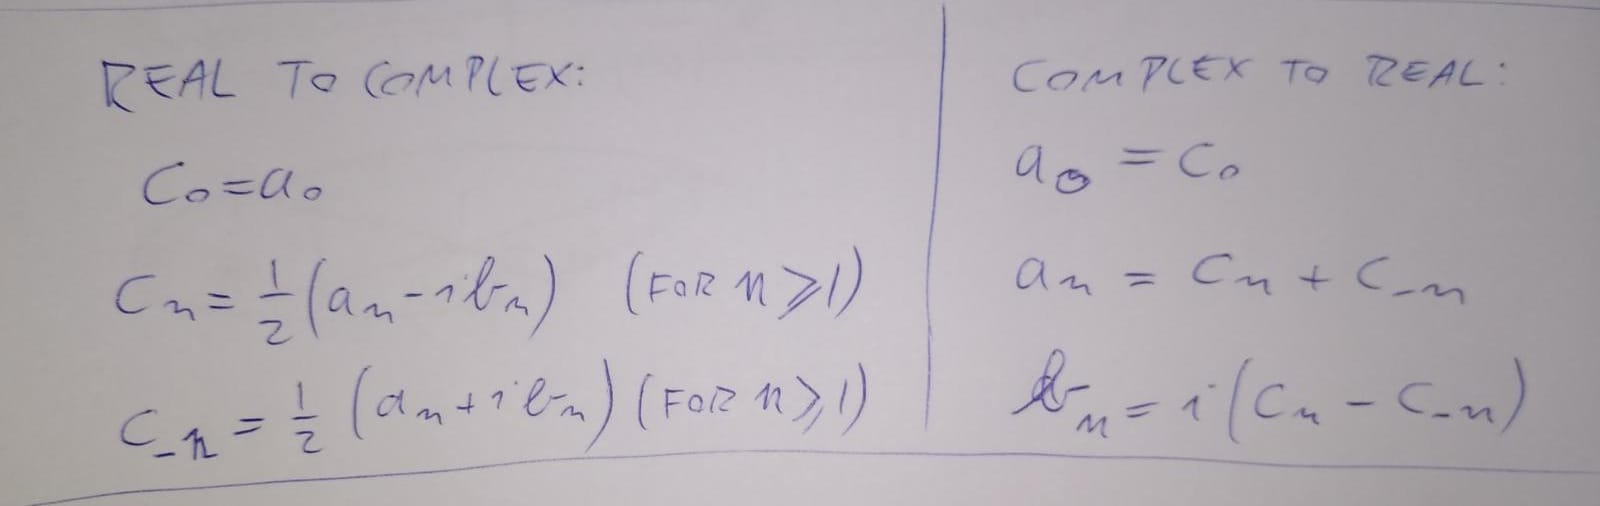 REAL TO COMPLEX:
C₀=a₀
Cₙ=½(aₙ-ibₙ) (FOR n⩾1)
C₋ₙ=½(aₙ+ibₙ)(FOR n⩾1)
COMPLEX TO REAL:
a₀=C₀
aₙ=Cₙ+C₋ₙ
bₙ=i(Cₙ-C₋ₙ)